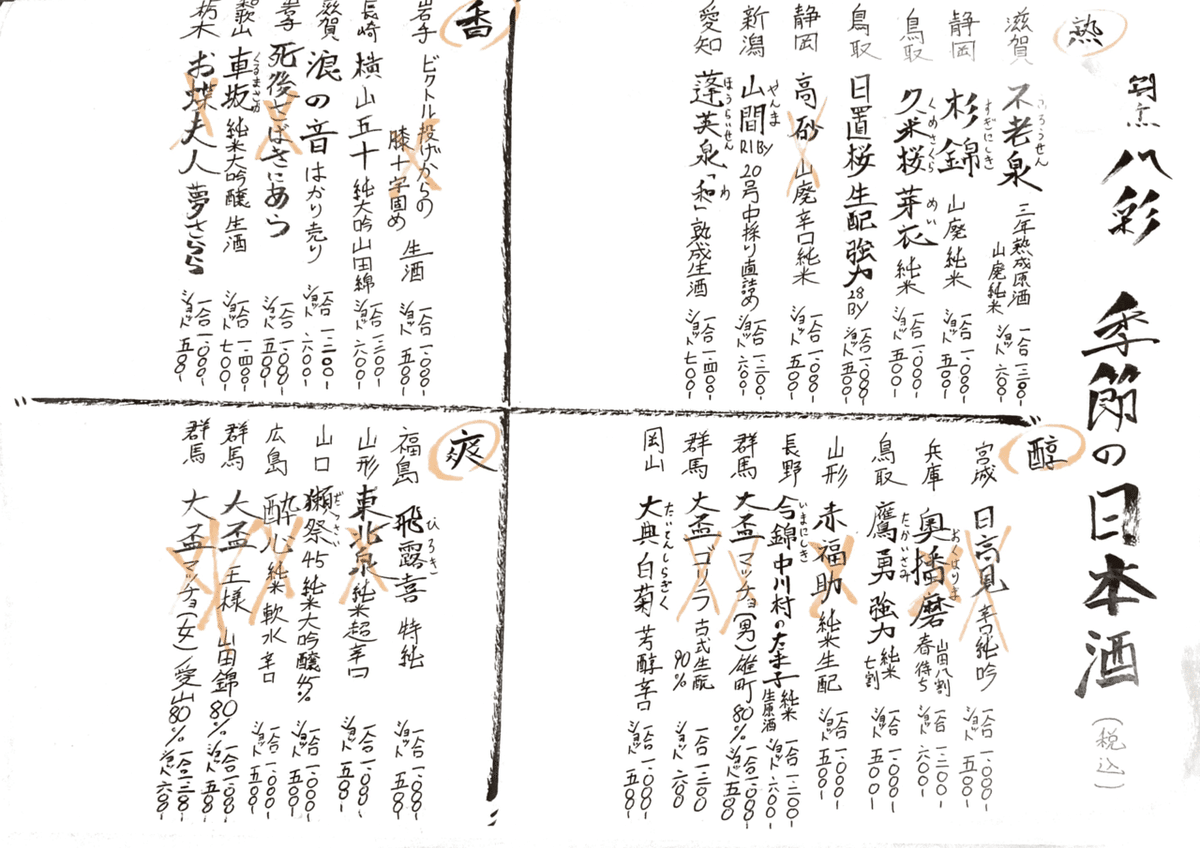 八彩 季節の日本酒 (税込)
熟
滋賀 不老泉 ふろうせん 三年熟成原酒 山廃純米 一合 一、三〇〇- ショット 六〇〇-
静岡 杉錦 すぎにしき 山廃純米 一合 一、〇〇〇- ショット 五〇〇-
鳥取 久米桜 くめざくら 芽衣 めい 純米 一合 一、〇〇〇- ショット 五〇〇-
鳥取 日置桜 生酛強力 28BY 一合 一、〇〇〇- ショット 五〇〇-
静岡 高砂 山廃辛口純米 一合 一、〇〇〇- ショット 五〇〇-
新潟 山間 やんま R1BY 20号中採り直詰め 一合 一、三〇〇- ショット 六〇〇-
愛知 蓬莱泉 ほうらいせん 「和」 わ 熟成生酒 一合 一、四〇〇- ショット 七〇〇-
醇
宮城 日高見 辛口純吟 一合 一、〇〇〇- ショット 五〇〇-
兵庫 奥播磨 おくはりま 山田八割 春待ち 一合 一、三〇〇- ショット 六〇〇-
鳥取 鷹勇 たかいさみ 強力 純米 七割 一合 一、〇〇〇- ショット 五〇〇-
山形 赤福助 純米生酛 一合 一、〇〇〇- ショット 五〇〇-
長野 今錦 いまにしき 中川村のたま子 純米 生原酒 一合 一、三〇〇- ショット 六〇〇-
群馬 大盃 マッチョ(男) 雄町80% 一合 一、〇〇〇- ショット 五〇〇
群馬 大盃 ゴリラ 古式生酛 90% 一合 一、三〇〇 ショット 六〇〇
岡山 大典白菊 たいてんしらぎく 芳醇辛口 一合 一、〇〇〇- ショット 五〇〇-
香
岩手 ビクトル投げからの 膝十字固め 生酒 一合 一、〇〇〇- ショット 五〇〇-
長崎 横山五十 純大吟山田錦 一合 一、三〇〇- ショット 六〇〇-
滋賀 浪の音 はかり売り 一合 一、三〇〇- ショット 六〇〇-
岩手 死後さばきにあう 一合 一、〇〇〇- ショット 五〇〇-
和歌山 車坂 くるまざか 純米大吟醸 生酒 一合 一、四〇〇- ショット 七〇〇-
栃木 お蝶夫人 夢ささら 一合 一、〇〇〇- ショット 五〇〇-
爽
福島 飛露喜 ひろき 特純 一合 一、〇〇〇- ショット 五〇〇-
山形 東北泉 純米超辛口 一合 一、〇〇〇- ショット 五〇〇-
山口 獺祭45 だっさい 純米大吟醸45% 一合 一、〇〇〇- ショット 五〇〇-
広島 酔心 純米軟水 辛口 一合 一、〇〇〇- ショット 五〇〇-
群馬 大盃 王様 山田錦80% 一合 一、〇〇〇- ショット 五〇〇
群馬 大盃 マッチョ(女) 愛山80% 一合 一、三〇〇- ショット 六〇〇-